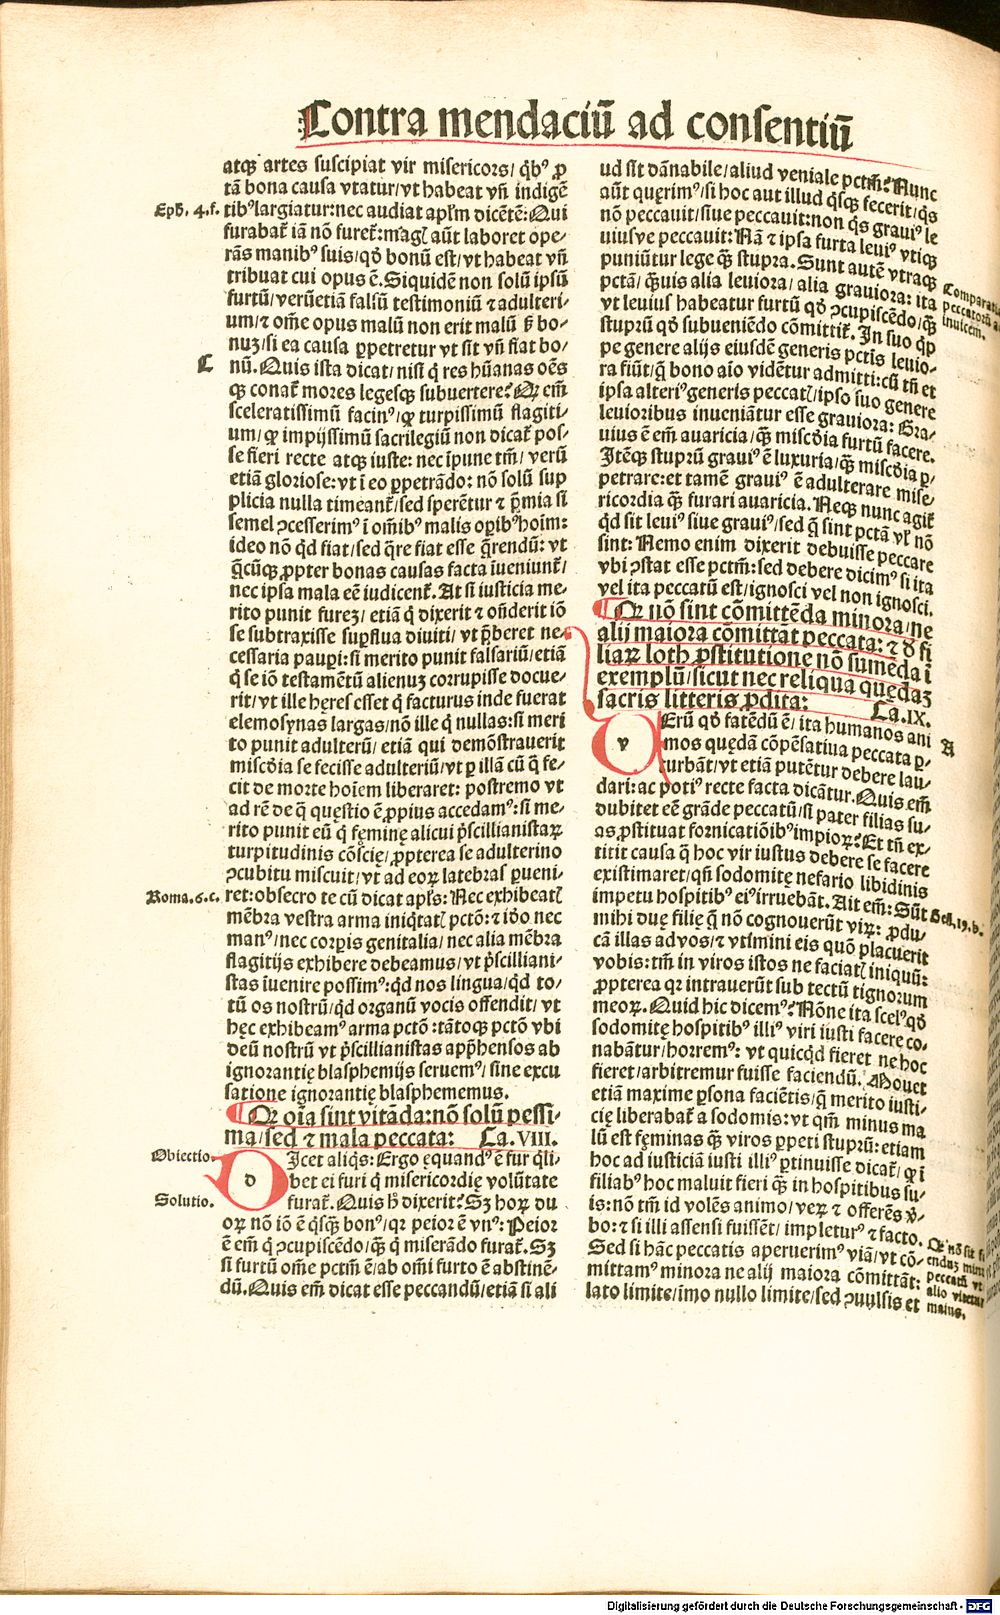 Contra mendaciū ad consentiū
atqȝ artes suscipiat vir misericors/ q̇bꝰ ꝓ
tā bona causa vtatur/vt habeat vn̄ indigē
Eph. 4.f.
tibꝰlargiatur:nec audiat apl'm dicētē:Qui
furabat̄ iā nō furet̄:magꝭ aūt laboret ope/
rās manibꝰ suis/qḋ bonū est/vt habeat vn̄
tribuat cui opus ē.Siquidē non solū ipsū
furtū/verūetiā falsū testimoniū ⁊ adulteri/
um/⁊ om̄e opus malū non erit malū s̄ bo/
nuȝ/si ea causa ꝑpetretur vt sit vn̄ fiat bo/
C
nū.Quis ista dicat/nisi q̇ res hūanas oēs
qȝ conat̄ mores legesqȝ subuertere?Qꝛ em̄
sceleratissimū facinꝰ/qꝛ turpissimū flagiti/
um/qꝛ impijssimū sacrilegiū non dicat̄ pos/
se fieri recte atqȝ iuste: nec īpune tm̄/ verū
etiā gloriose:vt ī eo ꝑpetrādo: nō solū sup
plicia nulla timeant̄/sed sperētur ⁊ p̄mia si
semel ꝯcesserimꝰ ī om̄ibꝰ malis oꝑibꝰhoim:
ideo nō q̇d fiat/sed q̄re fiat esse q̄rendū: vt
q̄cūqȝ ꝓpter bonas causas facta īueniunt̄/
nec ipsa mala eē iudicent̄. At si iusticia me/
rito punit fureȝ/ etiā q̇ dixerit ⁊ on̄derit iō
se subtraxisse suꝑflua diuiti/ vt p̄beret ne/
cessaria pauꝑi:si merito punit falsariū/etiā
q̇ se iō testamētū alienuȝ corrupisse docue/
rit/vt ille heres esset q̇ facturus inde fuerat
elemosynas largas/nō ille q̇ nullas:si meri
to punit adulterū/ etiā qui demōstrauerit
misc̄dia se fecisse adulteriū/vt ꝑ illā cū q̇ fe/
cit de morte hoiem liberaret: postremo vt
ad rē de q̇ questio ē ꝓpius accedamꝰ:si me/
rito punit eū q̇ feminę alicui p̄scillianistaꝝ
turpitudinis cōscię/ ꝓpterea se adulterino
ꝯcubitu miscuit/ vt ad eoꝝ latebras ꝑueni/
Roma.6.c.
ret:obsecro te cū dicat apl's:Nec exhibeatꝭ
mēbra vestra arma iniq̇tatꝭ pctō:⁊ iḋo nec
manꝰ/nec corꝑis genitalia/ nec alia mēbra
flagitijs exhibere debeamus/vt p̄scilliani/
stas īuenire possimꝰ:q̇d nos lingua/q̇d to/
tū os nostrū/q̇d organū vocis offendit/ vt
hęc exhibeamꝰ arma pctō:tātoqȝ pctō vbi
deū nostrū vt p̄scillianistas app̄hensos ab
ignorantię blasphemijs seruemꝰ/ sine excu
satione ignorantię blasphememus.
¶ Qꝛ oīa sint vitāda:nō solū pessi/
ma/sed ⁊ mala peccata: Ca.VIII.
Obiectio.
dIcet aliq̇s: Ergo ęquandꝰ ē fur q̇li/
bet ei furi q̇ misericordię volūtate
Solutio.
furat̄.Quis h̄ dixerit?Sȝ hoꝝ du
oꝝ nō iō ē q̇sqȝ bonꝰ/ qꝛ peior ē vnꝰ:Peior
ē em̄ q̇ ꝯcupiscēdo/q̄ȝ q̇ miserādo furat̄.Sȝ
si furtū om̄e pctm̄ ē/ab om̄i furto ē abstinē/
dū.Quis em̄ dicat esse peccandū/etiā si ali
ud sit dānabile/aliud veniale pctm̄?Nunc
aūt querimꝰ/si hoc aut illud q̇sqȝ fecerit/q̇s
nō peccauit/siue peccauit:non q̇s grauiꝰ le
uiusve peccauit:Nā ⁊ ipsa furta leuiꝰ vtiqȝ
puniūtur lege q̄ȝ stupra.Sunt autē vtraqȝ
Comparatio
peccatorū ad
inuicem.
pctā/q̄uis alia leuiora/ alia grauiora: ita
vt leuius habeatur furtū qḋ ꝯcupiscēdo/q̄ȝ
stuprū qḋ subueniēdo cōmittit̄. In suo q̇ꝑ
pe genere alijs eiusdē generis pctīs leuio/
ra fiūt/q̄ bono aīo vidētur admitti:cū tn̄ et
ipsa alteriꝰgeneris peccatꝭ/ipso suo genere
leuioribus inueniātur esse grauiora: Gra/
uius ē em̄ auaricia/q̄ȝ misc̄dia furtū facere.
Itēqȝ stuprū grauiꝰ ē luxuria/q̄ȝ misc̄dia ꝑ/
petrare:et tamē grauiꝰ ē adulterare mise/
ricordia q̄ȝ furari auaricia.Neqȝ nunc agit̄
q̇d sit leuiꝰ siue grauiꝰ/sed q̄ sint pctā vl' nō
sint: Nemo enim dixerit debuisse peccare
vbi ꝯstat esse pctm̄:sed debere dicimꝰ si ita
vel ita peccatū est/ignosci vel non ignosci.
¶ Qꝛ nō sint cōmittēda minora/ne
alij maiora cōmittāt peccata: ⁊ ḋ fi
liaꝝ loth ꝓstitutione nō sumēda ī
exemplū/sicut nec reliqua quędaȝ
sacris litteris ꝓdita: Ca.IX.
A
vErū qḋ fatēdū ē/ ita humanos ani
mos quędā cōpēsatiua peccata ꝑ/
turbāt/vt etiā putētur debere lau/
dari:ac potiꝰ recte facta dicātur.Quis em̄
dubitet eē grāde peccatū/si pater filias su/
as ꝓstituat fornicatiōibꝰimpioꝝ?Et tn̄ ex/
titit causa q̄ hoc vir iustus debere se facere
existimaret/qn̄ sodomitę nefario libidinis
impetu hospitibꝰ eiꝰirruebāt. Ait em̄: Sūt
Gen.19.b.
mihi duę filię q̄ nō cognouerūt viꝝ: ꝓdu/
cā illas ad vos/⁊ vtimini eis quō placuerit
vobis:tm̄ in viros istos ne faciatꝭ iniquū:
ꝓpterea qꝛ intrauerūt sub tectū tignorum
meoꝝ.Quid hic dicemꝰ?Nōne ita scelꝰqḋ
sodomitę hospitibꝰ illiꝰ viri iusti facere co/
nabātur/horremꝰ: vt quicq̇d fieret ne hoc
fieret/arbitremur fuisse faciendū. Mouet
etiā maxime ꝑsona faciētis/q̄ merito iusti/
cię liberabat̄ a sodomis:vt qm̄ minus ma
lū est feminas q̄ȝ viros ꝑpeti stuprū:etiam
hoc ad iusticiā iusti illiꝰ ꝑtinuisse dicat̄/ qꝛ ī
filiabꝰ hoc maluit fieri q̄ȝ in hospitibus su/
is:nō tm̄ id volēs animo/ veꝝ ⁊ offerēs v̇/
bo:⁊ si illi assensi fuissēt/ impleturꝰ ⁊ facto.
Qꝛ nō sit fi
endūȝ minꝰ
peccatū vt
alio vitetur
maius.
Sed si hāc peccatis aperuerimꝰ viā/vt cō/
mittamꝰ minora ne alij maiora cōmittāt:
lato limite/imo nullo limite/sed ꝯuulsis et
Digitalisierung gefördert durch die Deutsche Forschungsgemeinschaft - DFG